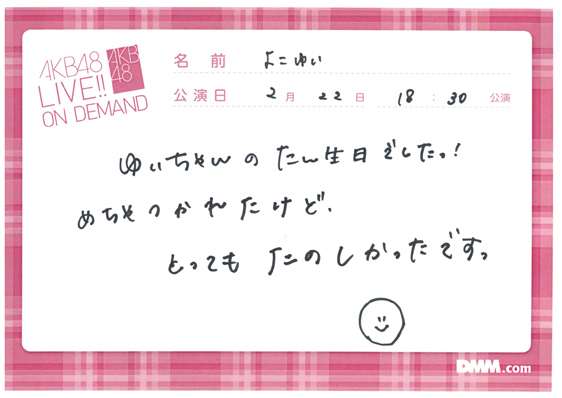 AKB48
LIVE!!
ON DEMAND
AKB
48
名前 よこゆい
公演日 2月 22日 18:30 公演
ゆいちゃんの たん生日でしたっ!
めちゃつかれたけど、
とっても たのしかったですっ
DMM.com